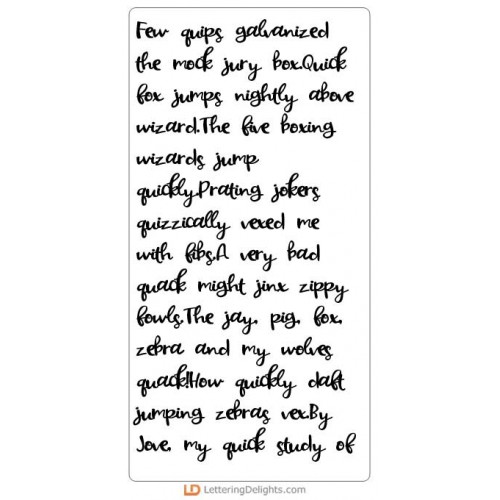 Few quips galvanized
the mock jury box.Quick
fox jumps nightly above
wizard.The five boxing
wizards jump
quickly.Prating jokers
quizzically vexed me
with fibs.A very bad
quack might jinx zippy
fowls.The jay, pig, fox,
zebra and my wolves
quack!How quickly daft
jumping zebras vex.By
Jove, my quick study of
LD LetteringDelights.com